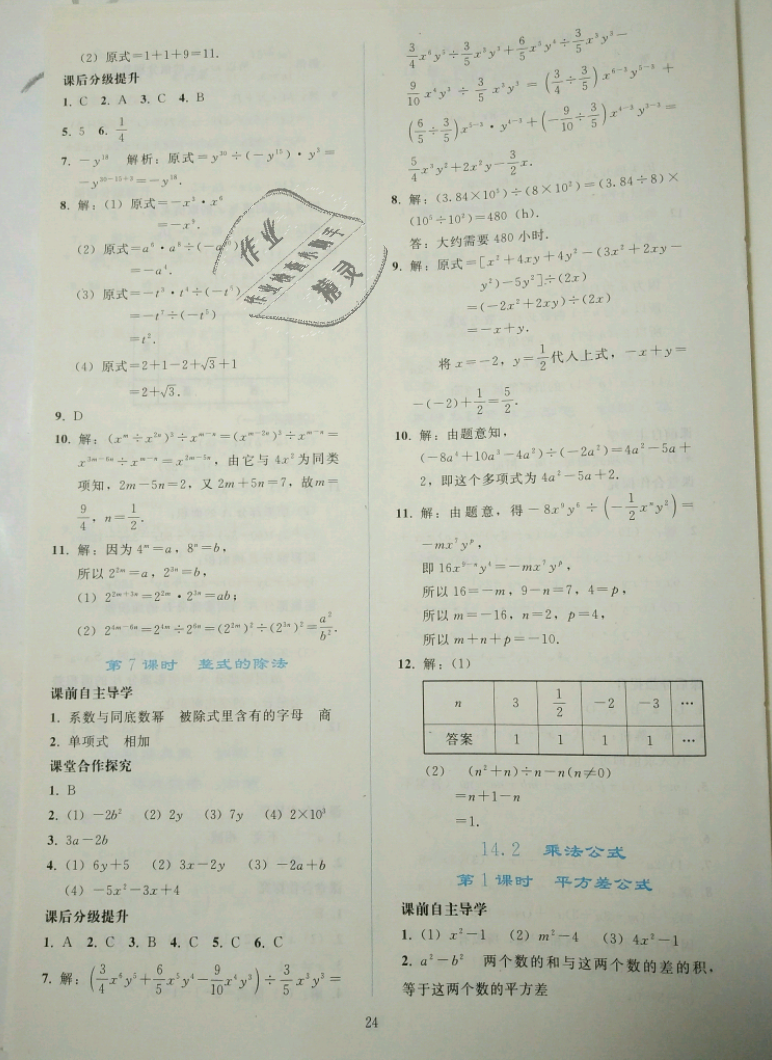 (2) 原式=1+1+9=11.
课后分级提升
1. C 2. A 3. C 4. B
5. 5 6. 1/4
7. -y¹⁸ 解析:原式=y³⁰÷(-y¹⁵)·y³=
-y³⁰⁻¹⁵⁺³=-y¹⁸.
8. 解:(1) 原式=-x³·x⁶
=-x⁹.
(2) 原式=a⁶·a⁶÷(-a
=-a⁴.
(3) 原式=-t³·t⁴÷(-t⁵)
=-t⁷÷(-t⁵)
=t².
(4) 原式=2+1-2+√3+1
=2+√3.
9. D
10. 解:(xᵐ÷x²ⁿ)³÷xᵐ⁻ⁿ=(xᵐ⁻²ⁿ)³÷xᵐ⁻ⁿ=
x³ᵐ⁻⁶ⁿ÷xᵐ⁻ⁿ=x²ᵐ⁻⁵ⁿ,由它与 4x² 为同类
项知,2m-5n=2,又 2m+5n=7,故m=
9/4,n=1/2.
11. 解:因为 4ᵐ=a,8ⁿ=b,
所以 2²ᵐ=a,2³ⁿ=b,
(1) 2²ᵐ⁺³ⁿ=2²ᵐ·2³ⁿ=ab;
(2) 2⁴ᵐ⁻⁶ⁿ=2⁴ᵐ÷2⁶ⁿ=(2²ᵐ)²÷(2³ⁿ)²=a²/b².
第7课时 整式的除法
课前自主导学
1. 系数与同底数幂 被除式里含有的字母 商
2. 单项式 相加
课堂合作探究
1. B
2. (1) -2b² (2) 2y (3) 7y (4) 2×10³
3. 3a-2b
4. (1) 6y+5 (2) 3x-2y (3) -2a+b
(4) -5x²-3x+4
课后分级提升
1. A 2. C 3. B 4. C 5. C 6. C
7. 解:(3/4x⁶y⁵+6/5x⁵y⁴-9/10x⁴y³)÷3/5x³y³=
3/4x⁶y⁵÷3/5x³y³+6/5x⁵y⁴÷3/5x³y³-
9/10x⁴y³÷3/5x³y³=(3/4÷3/5)x⁶⁻³y⁵⁻³+
(6/5÷3/5)x⁵⁻³·y⁴⁻³+(-9/10÷3/5)x⁴⁻³y³⁻³=
5/4x³y²+2x²y-3/2x.
8. 解:(3.84×10⁵)÷(8×10²)=(3.84÷8)×
(10⁵÷10²)=480 (h).
答:大约需要 480 小时.
9. 解:原式=[x²+4xy+4y²-(3x²+2xy-
y²)-5y²]÷(2x)
=(-2x²+2xy)÷(2x)
=-x+y.
将 x=-2,y=1/2代入上式,-x+y=
-(-2)+1/2=5/2.
10. 解:由题意知,
(-8a⁴+10a³-4a²)÷(-2a²)=4a²-5a+
2,即这个多项式为 4a²-5a+2.
11. 解:由题意,得-8x⁹y⁶÷(-1/2xⁿy²)=
-mx⁷yᵖ,
即 16x⁹⁻ⁿy⁴=-mx⁷yᵖ,
所以 16=-m,9-n=7,4=p,
所以 m=-16,n=2,p=4,
所以 m+n+p=-10.
12. 解:(1)
n 3 1/2 -2 -3 …
答案 1 1 1 1 …
(2) (n²+n)÷n-n(n≠0)
=n+1-n
=1.
14.2 乘法公式
第1课时 平方差公式
课前自主导学
1. (1) x²-1 (2) m²-4 (3) 4x²-1
2. a²-b² 两个数的和与这两个数的差的积,
等于这两个数的平方差
24
作业
作业检查小助手
精灵